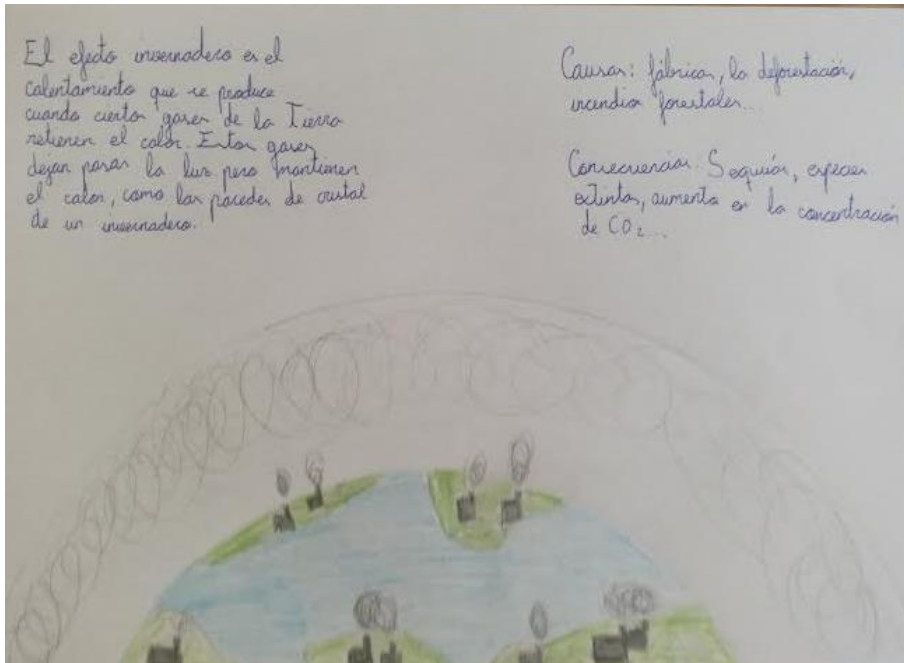 El efecto invernadero es el
calentamiento que se produce
cuando ciertos gases de la Tierra
retienen el calor. Estos gases
dejan pasar la luz pero mantienen
el calor, como las paredes de cristal
de un invernadero.
Causas: fábricas, la deforestación,
incendios forestales...
Consecuencias: Sequías, especies
extintas, aumento en la concentración
de CO₂...